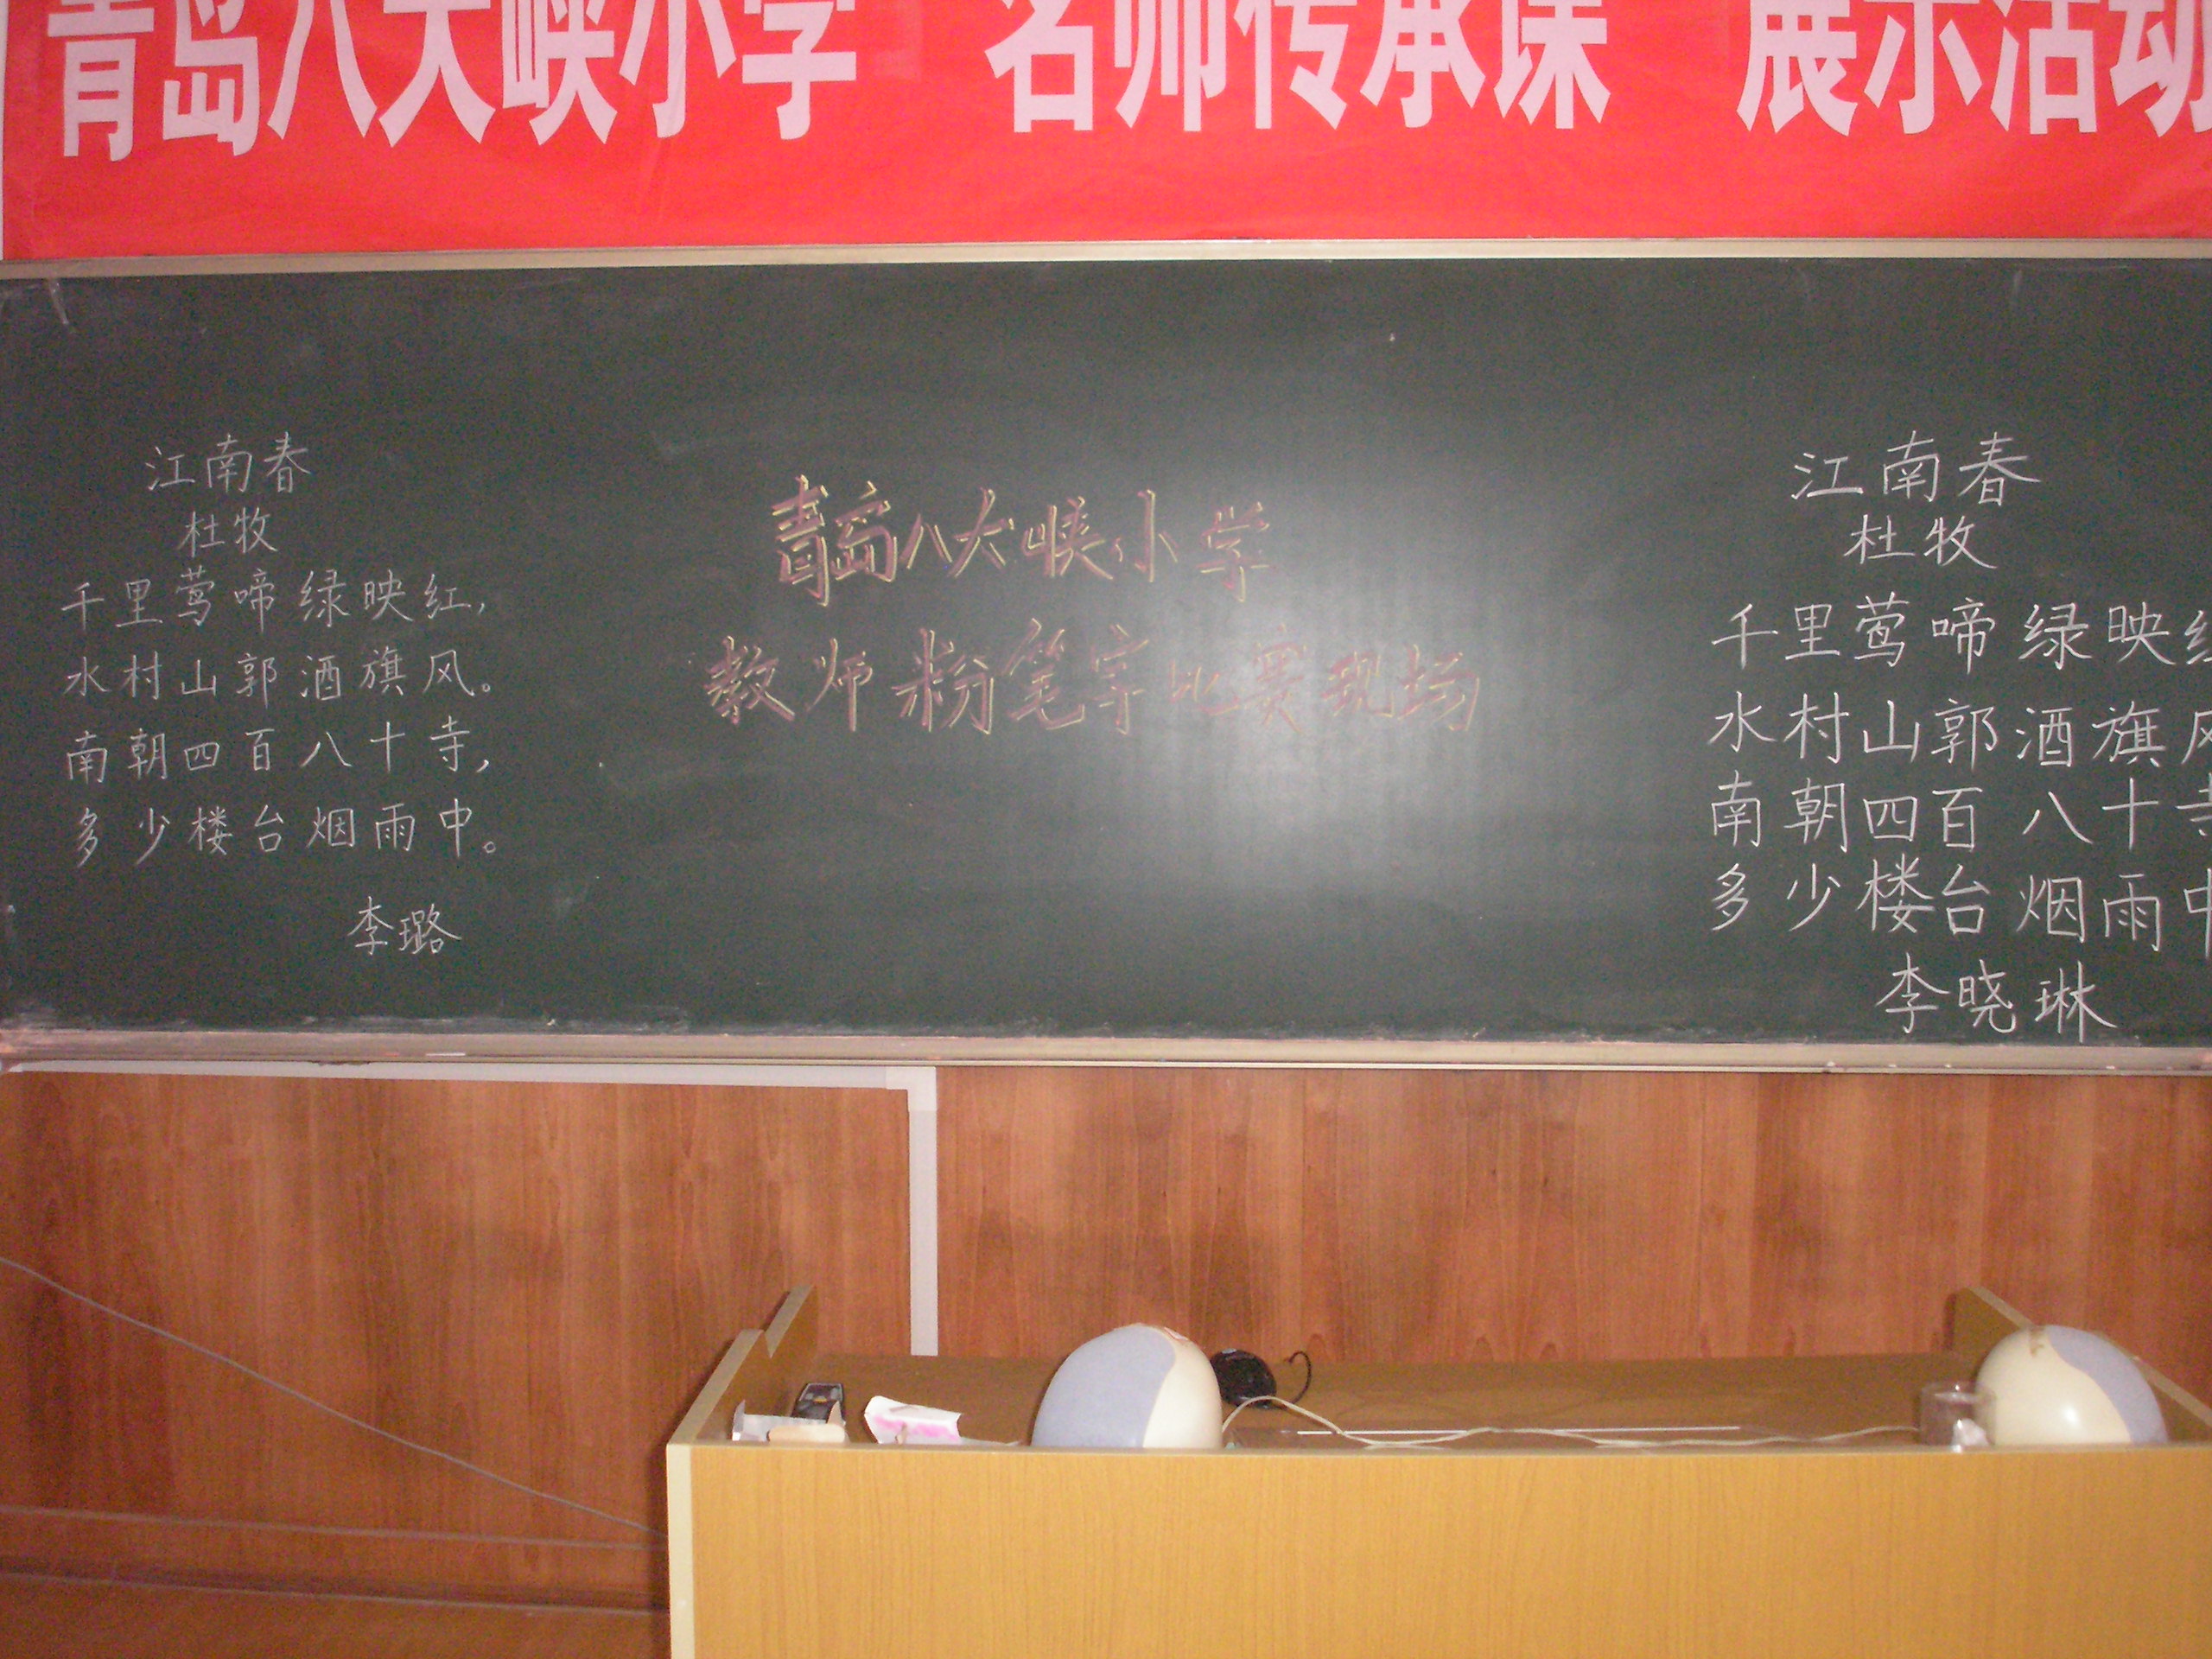 青岛八大峡小学 名师传承课 展示活动
江南春
杜牧
千里莺啼绿映红，
水村山郭酒旗风。
南朝四百八十寺，
多少楼台烟雨中。
李璐
青岛八大峡小学
教师粉笔字比赛现场
江南春
杜牧
千里莺啼绿映红
水村山郭酒旗风
南朝四百八十寺
多少楼台烟雨中
李晓琳